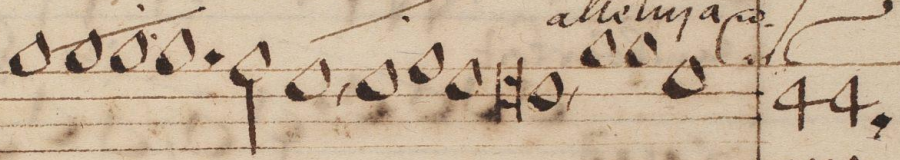 alleluya
44